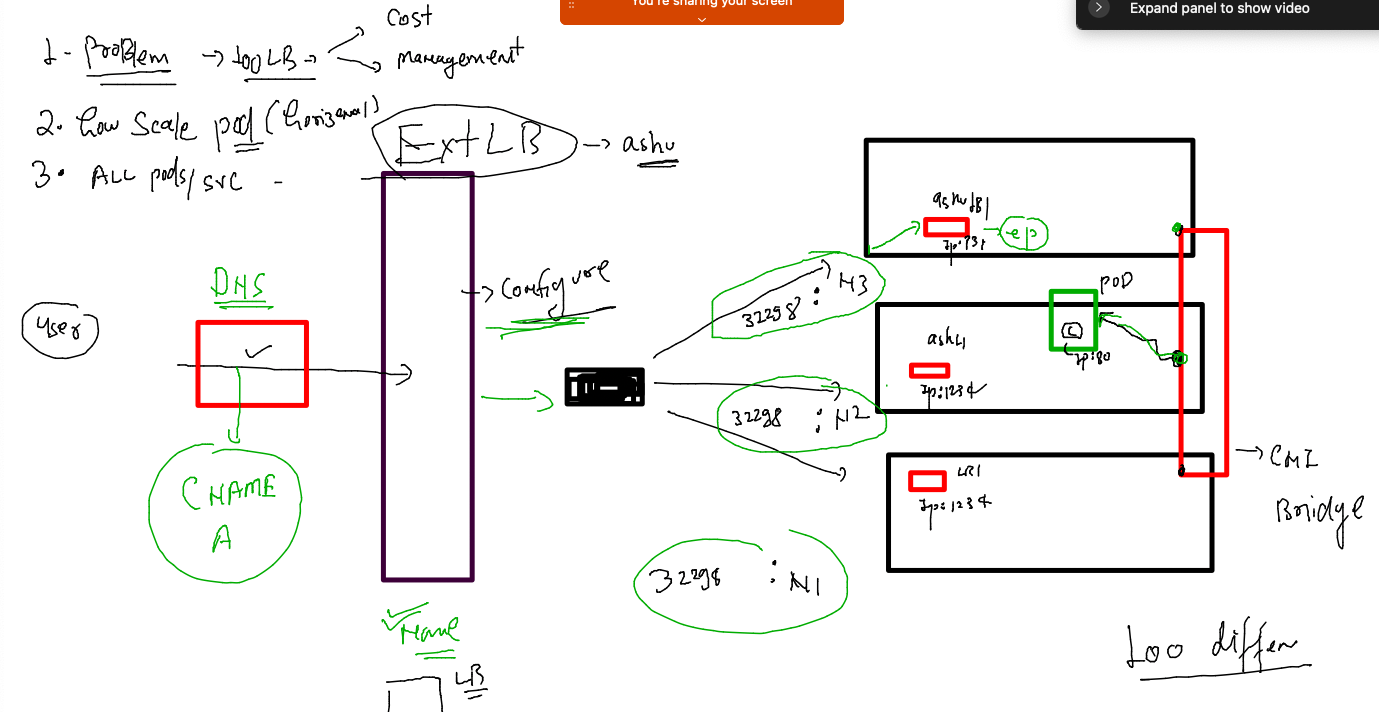 You're sharing your screen
Expand panel to show video
1- Problem → 100 LB → Cost
management
2. how Scale pod (horizonal)
3. ALL pods/svc -
Ext LB → ashu
DNS
User
CNAME
A
→ Configure
Name
LB
32298 : N3
32298 : N2
32298 : N1
ashulb1
ep
POD
C
Ip:80
ashu
Ip:1234
LR1
Ip:1234
→ CNI
Bridge
100 differ